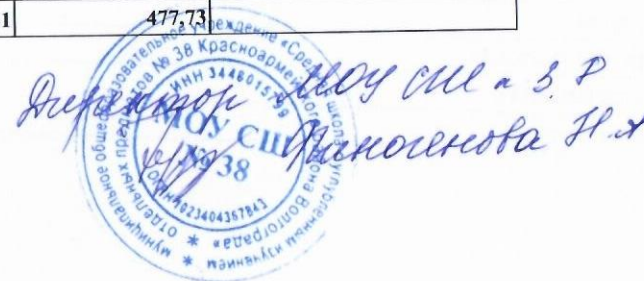 1 477,73
Директор МОУ СШ № 38
Финогенова Н.А
муниципальное общеобразовательное учреждение «Средняя школа с углубленным изучением
отдельных предметов № 38 Красноармейского района Волгограда»
ИНН 3446015739
МОУ СШ
№ 38
ОГРН 1023404367843